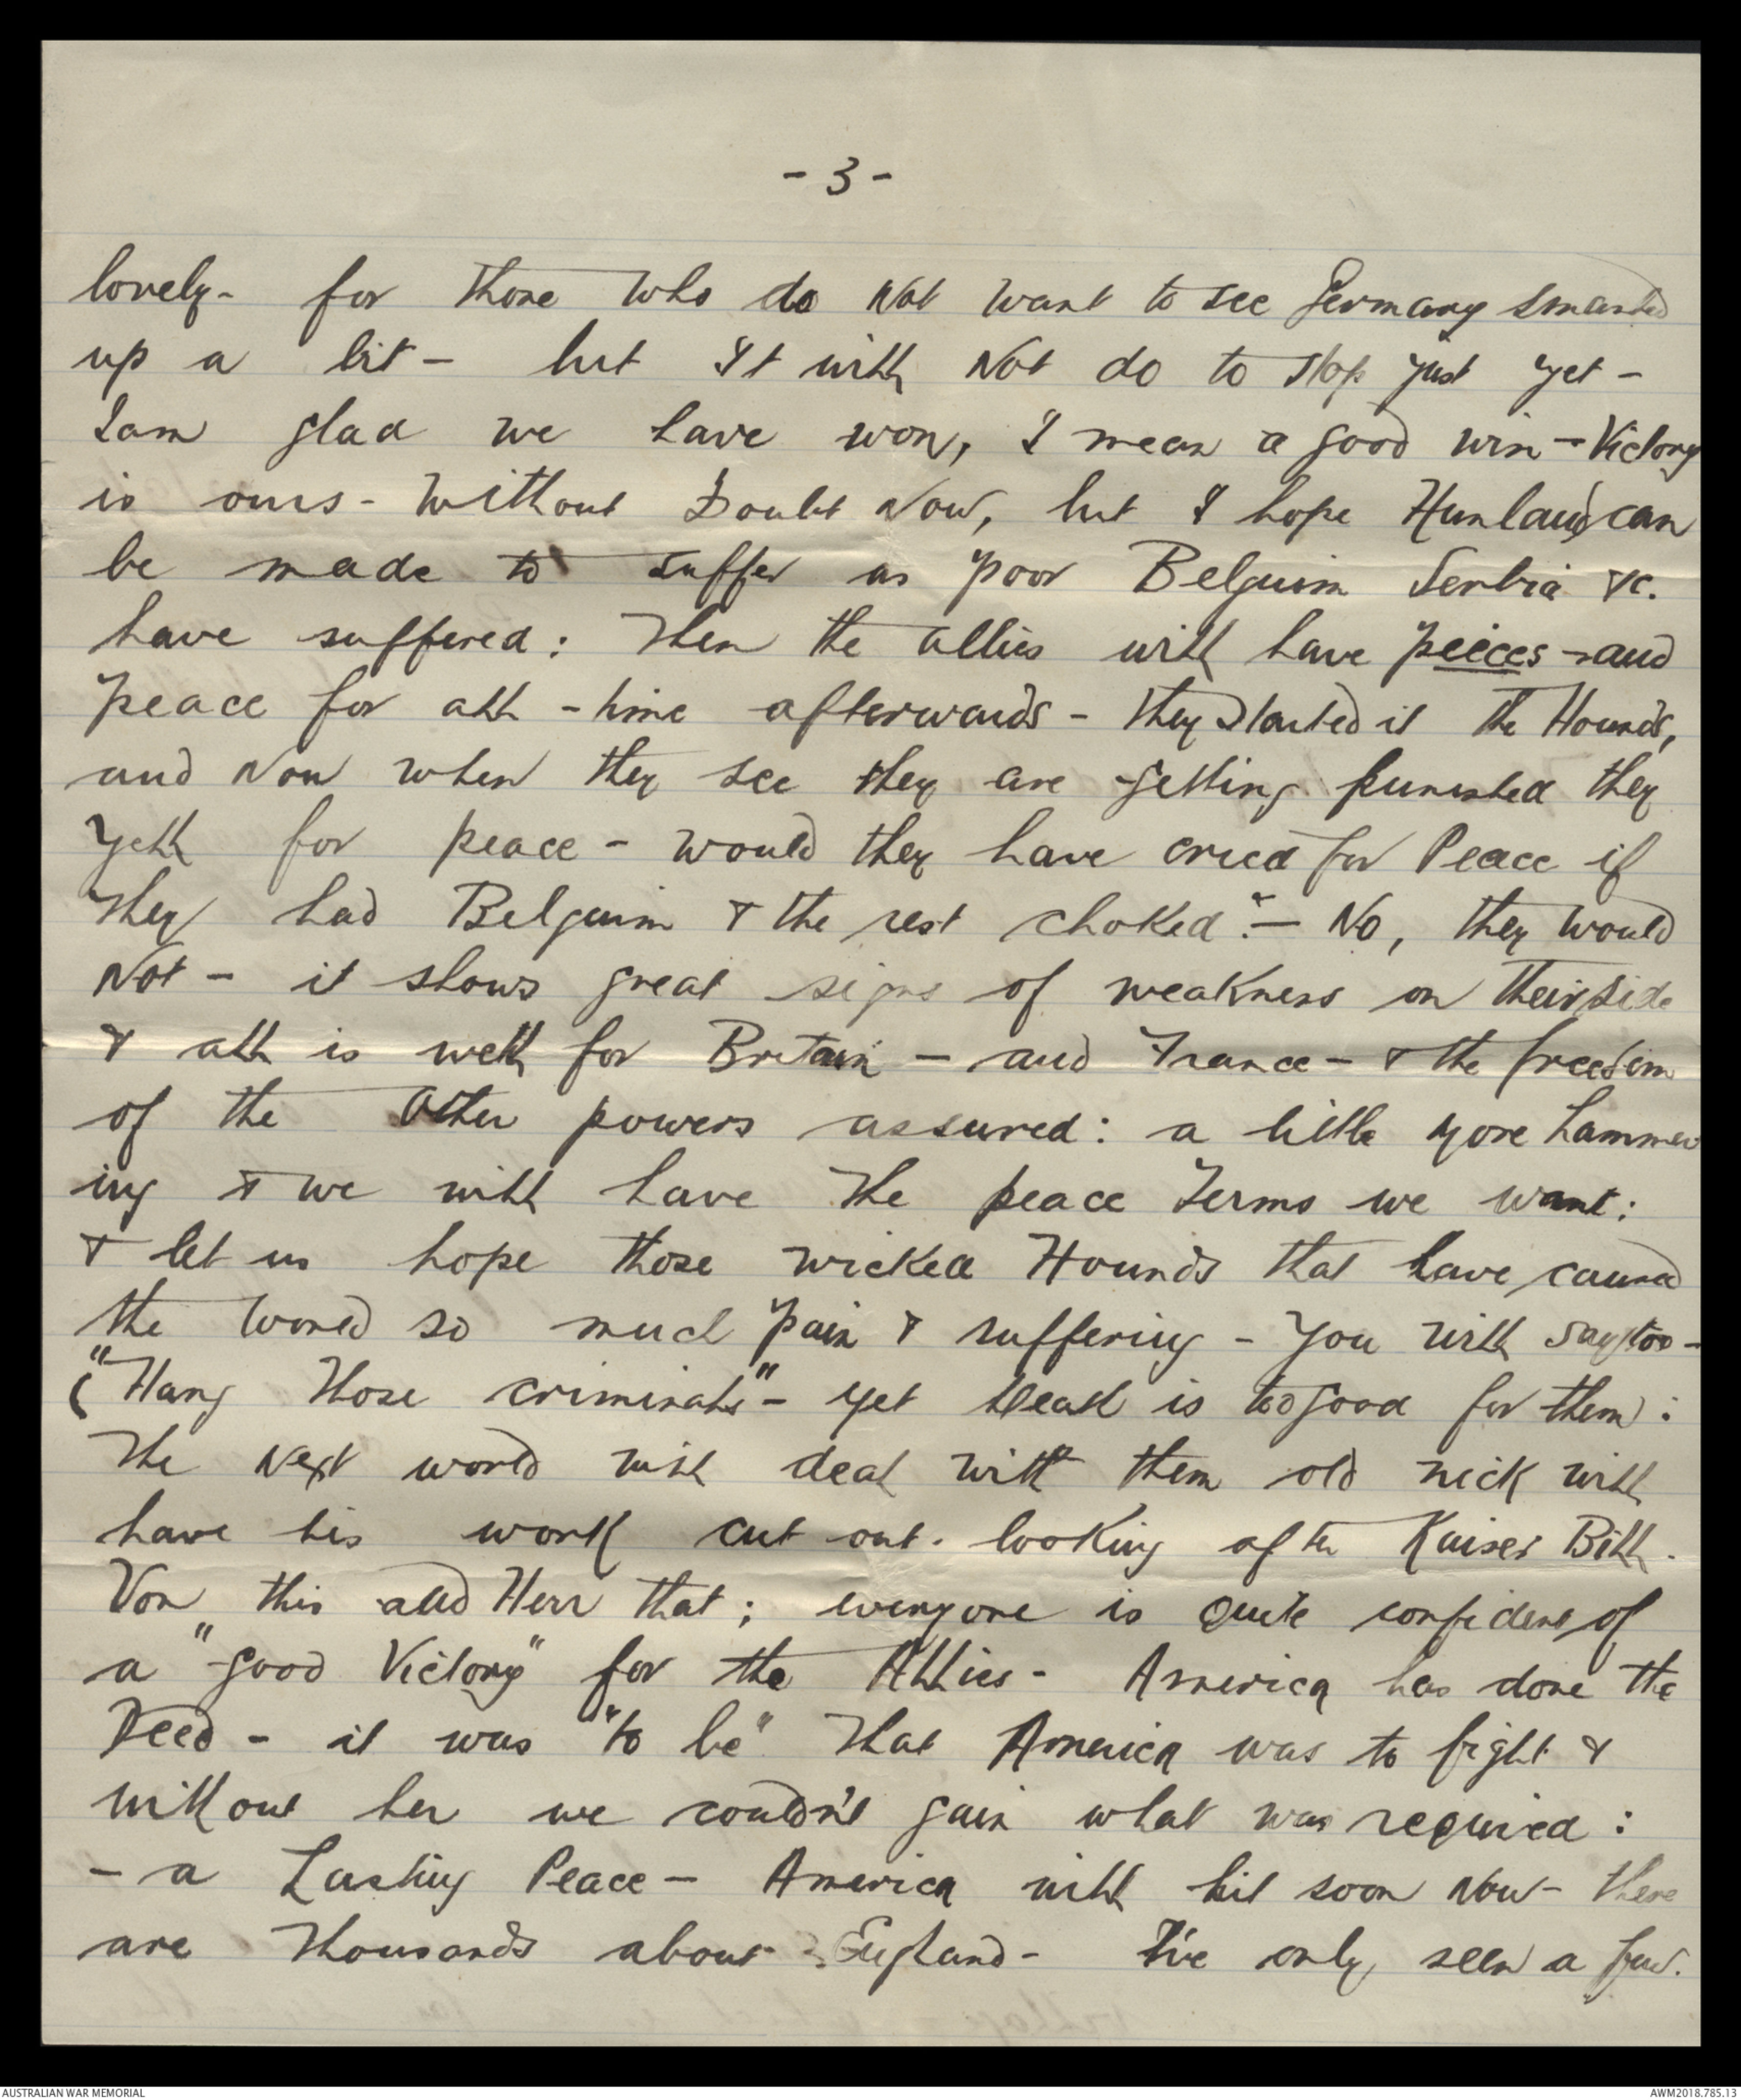 - 3 -
lovely - for those who do not want to see Germany smarted
up a bit - but It will Not do to stop just yet -
I am glad we have won, I mean a good win - Victory
is ours - Without Doubt Now, but I hope Hunland can
be made to suffer as poor Belguim Serbia &c.
have suffered: Then the allies will have peices - and
peace for all - time afterwards - they started it the Hounds,
and Now when they see they are getting punished they
yell for peace - would they have cried for Peace if
they had Belguim & the rest choked? - No, they would
Not - it shows great signs of weakness on their side
& all is well for Britain - and France - & the freedom
of the other powers assured: a little more hammer
ing & we will have the peace Terms we want:
& let us hope those wicked Hounds that have caused
the World so much pain & suffering - you will say too -
("Hang those criminals" - yet Death is too good for them):
The Next world will deal with them old nick will
have his work cut out. looking after Kaiser Bill.
Von this and Herr that; everyone is quite confident of
a "good Victory" for the Allies - America has done the
Deed - it was "to be" that America was to fight &
without her we couldn't gain what was required:
- a Lasting Peace - America will hit soon Now - there
are thousands about England - I've only seen a few.
AUSTRALIAN WAR MEMORIAL
AWM2018.785.13